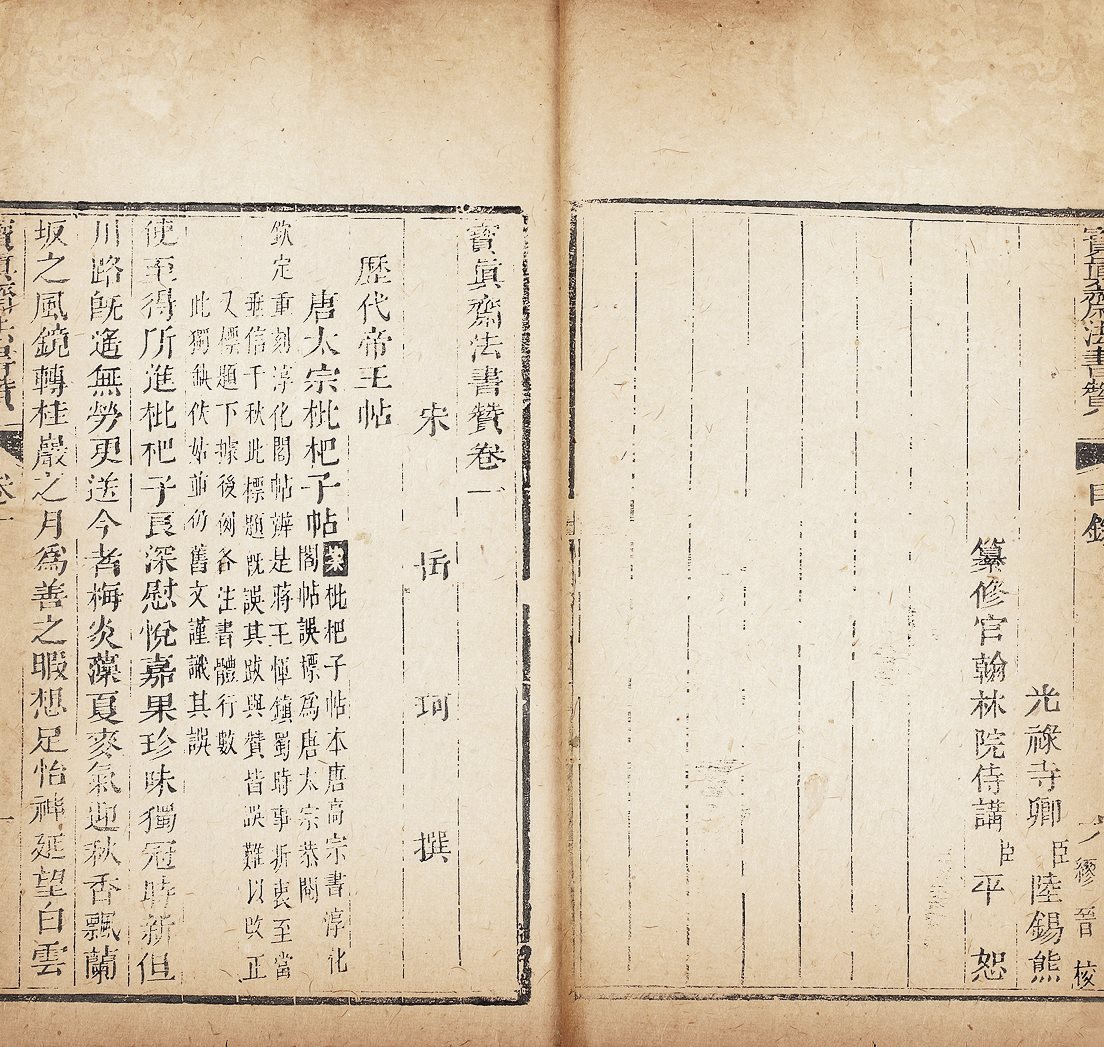 寶眞齋法書贊 目錄 繆晉校
光祿寺卿臣陸錫熊
纂修官翰林院侍講臣平 恕
寶眞齋法書贊卷一
宋 岳 珂 撰
歷代帝王帖
唐太宗枇杷子帖案枇杷子帖本唐高宗書淳化
閣帖誤標爲唐太宗恭閱
欽定重刻淳化閣帖辨是蔣王惲鎮蜀時事折衷至當
垂信千秋此標題旣誤其跋與贊皆誤難以改正
又標題下據後例各注書體行數
此獨缺佚姑並仍舊文謹識其誤
使至得所進枇杷子良深慰悅嘉果珍味獨冠時新但
川路旣遙無勞更送今者梅炎藻夏麥氣迎秋香飄蘭
坂之風鏡轉桂巖之月爲善之暇想足怡神延望白雲
寶眞齋法書贊 卷一 一